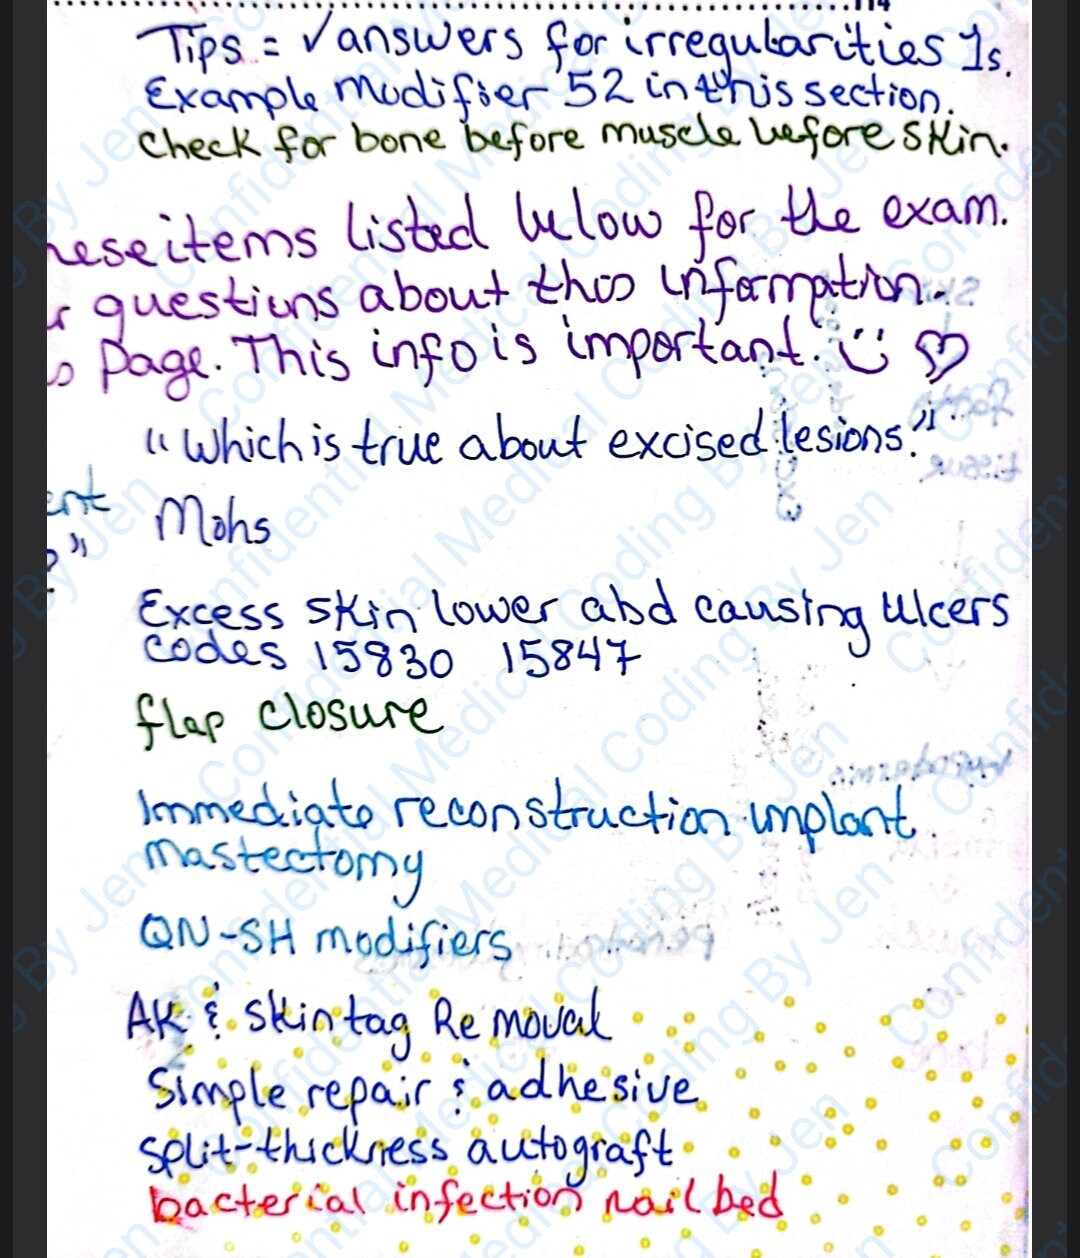 114
Tips = √answers for irregularities 1s.
Example modifier 52 in this section.
Check for bone before muscle before skin.
hese items listed below for the exam.
r questions about this information.
s page. This info is important.
"Which is true about excised lesions."
ent
Mohs
?"
Excess skin lower abd causing Ulcers
codes 15830 15847
flap closure
Immediate reconstruction implant.
Mastectomy
QN-SH modifiers
AK & skin tag Removal
Simple repair & adhesive
Split-thickness autograft
bacterial infection nail bed
Confidential Medical Coding By Jen